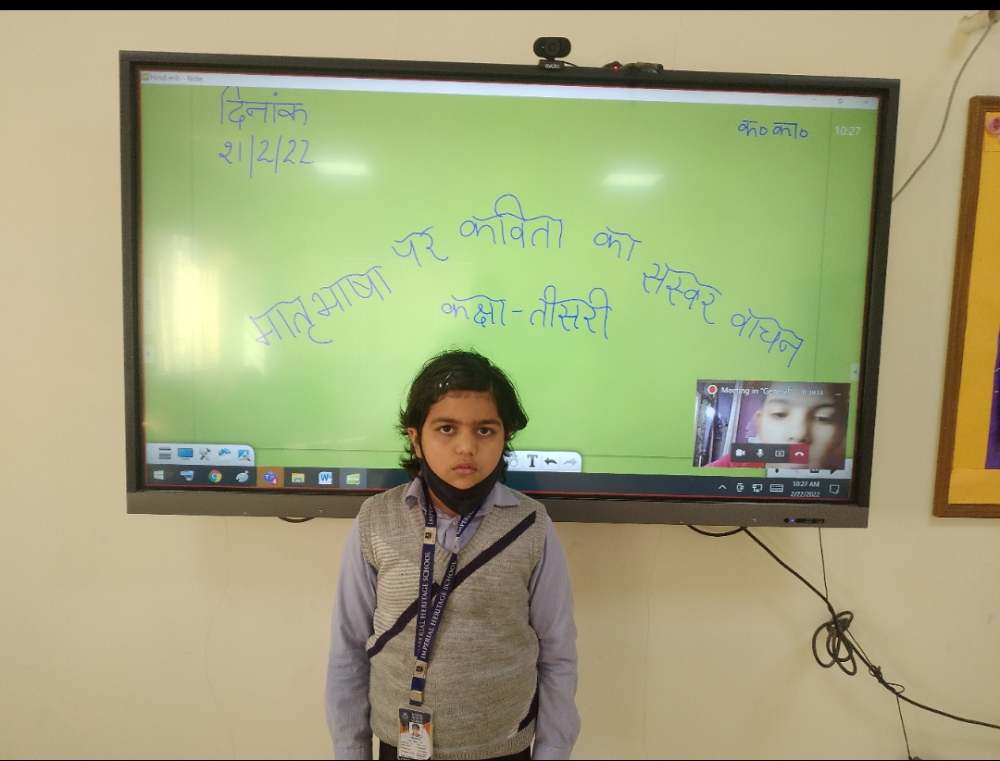 दिनांक
२1/2/22
क० का०
10:27
मातृभाषा पर कविता का सस्वर वाचन
कक्षा - तीसरी
Meeting in
T
W
10:27 AM
2/22/2022
IMPERIAL HERITAGE SCHOOL
IMPERIAL HERITAGE SCHOOL